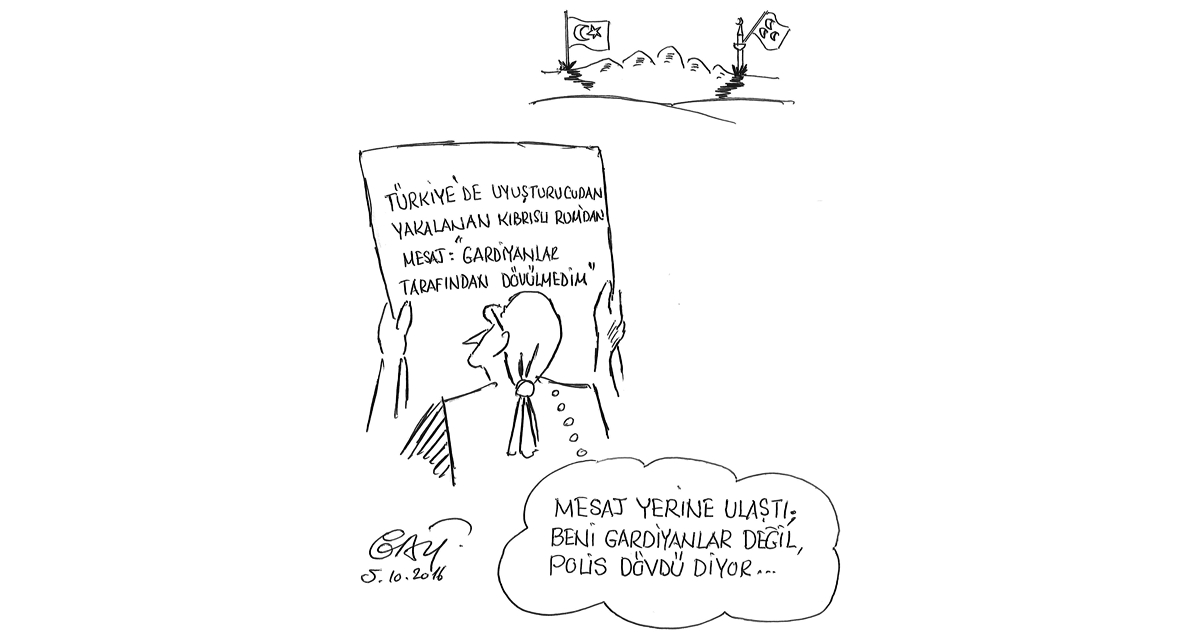 TÜRKİYE'DE UYUŞTURUCUDAN
YAKALANAN KIBRISLI RUM'DAN
MESAJ: "GARDİYANLAR
TARAFINDAN DÖVÜLMEDİM"
MESAJ YERİNE ULAŞTI;
BENİ GARDİYANLAR DEĞİL,
POLİS DÖVDÜ DİYOR...
5.10.2016